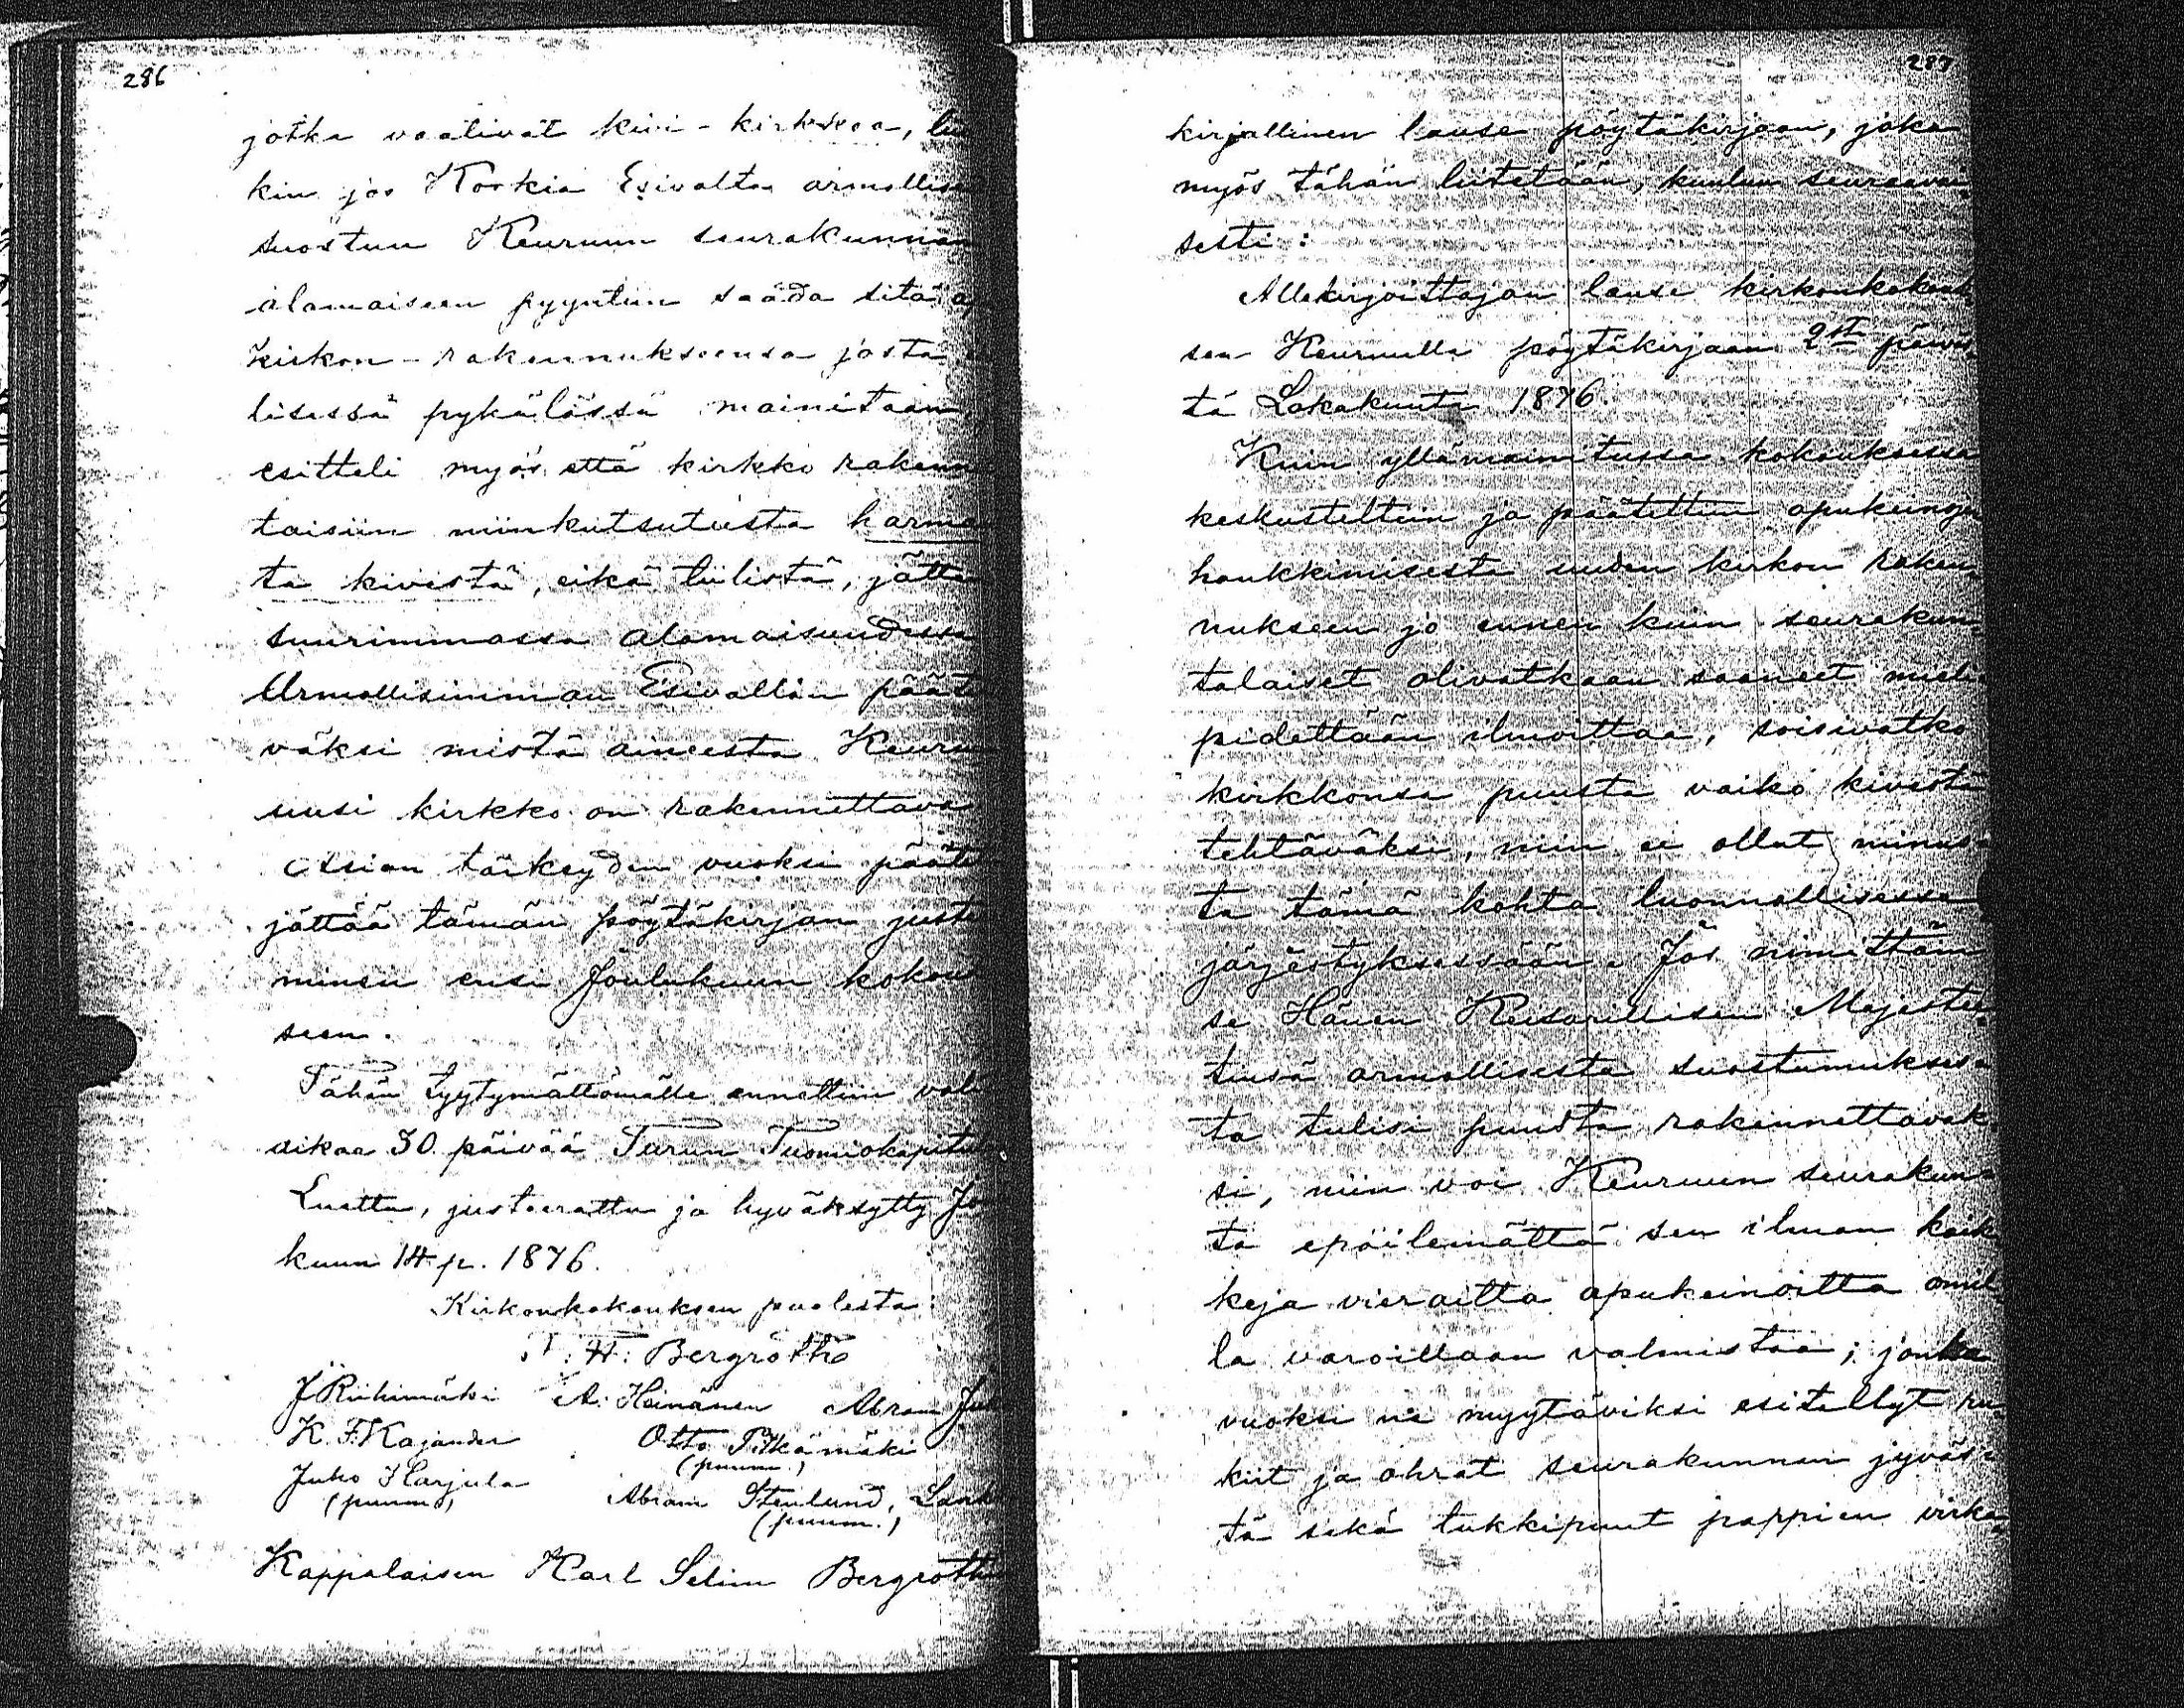 286
jotka vaativat kivi-kirkkoa,
kin jos Korkia Esivalta armollise
suostuu Keuruun seurakunnan
alamaiseen pyyntiin saada sitä
kirkon-rakennukseensa josta
lisessä pykälässä mainitaan,
esitteli myös että kirkko rakenn
taisiin niinkutsutuista harma
ta kivistä, eikä tiilistä, jätta
suurimmassa alamaisuudessa
Armollisimman Esivallan pääte
väksi mistä aineesta Keuru
uusi kirkko on rakennettava
Asian tärkeyden vuoksi päätet
jättää tämän pöytäkirjan juste
minsii ensi Joulukuun kokouk
seen.
Tähän tyytymättömälle annettiin vali
aikaa 30 päivää Turun Tuomiokapitul
Luettu, justeerattu ja hyväksytty Jo
kuun 14 p. 1876.
Kirkonkokouksen puolesta:
F. H. Bergroth
J Riihimäki A. Heinänen Abram Juh
K. F. Kajander Otto Pitkämäki
(puum.)
Juho Harjula Abram Stenlund,
(puum.) (puum.)
Kappalaisen Karl Selim Bergrothin
287
kirjallinen lause pöytäkirjaan, joka
myös tähän liitetään, kuuluu seuraavai
sesti:
Allekirjoittajan lause kirkonkokouk
sen Keuruulla pöytäkirjaan 2st päivä
tä Lokakuuta 1876.
Kuin yllämainitussa kokouksessa
keskusteltiin ja päätettiin apukeinoja
hankkimisesta uuden kirkon raken
nukseen jo ennen kuin seurakun
talaiset olivatkaan saaneet mieli
pidettään ilmoittaa, soisivatko
kirkkonsa puusta vaiko kivestä
tehtäväksi, niin ei ollut minus
ta tämä kohta luonnollisessa
järjestyksessään. Jos nimittäin
se Hänen Keisarillisen Majestee
tinsä armollisesta suostumukses
ta tulisi puusta rakennettavak
si, niin voi Keuruun seurakun
ta epäilemättä sen ilman kaik
keja vieraitta apukeinoitta omil
la varoillaan valmistaa; jonka
vuoksi ne myytäviksi esitellyt ru
kiit ja ohrat seurakunnan jyväs
tä sekä tukkipuut pappien virka